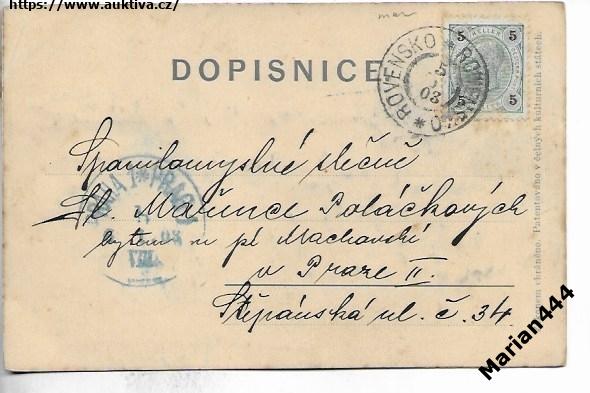 https://www.auktiva.cz/
DOPISNICE
ROVENSKO * ROHENSKO *
5
03
5 HELLER 5
5 5
Spanilomyslné slečně
Sl. Mařince Poláčkových
bytem u pí Machovské
v Praze II.
Štěpánská ul. č. 34.
PRAHA 1 * PRAG 1
03
VIII
chráněno. Patentováno v četných kulturních státech.
Marian444